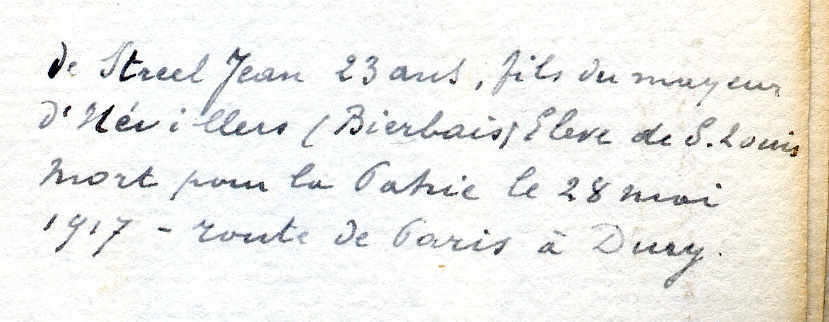 de Streel Jean 23 ans, fils du mayeur
d'Hévillers (Bierbais) Eleve de S. Louis
mort pour la Patrie le 28 mai
1917 - route de Paris à Dury.